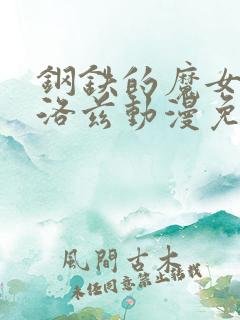 鋼鉄的魔女
洛茲動漫免
風間古木
未经同意禁止转载